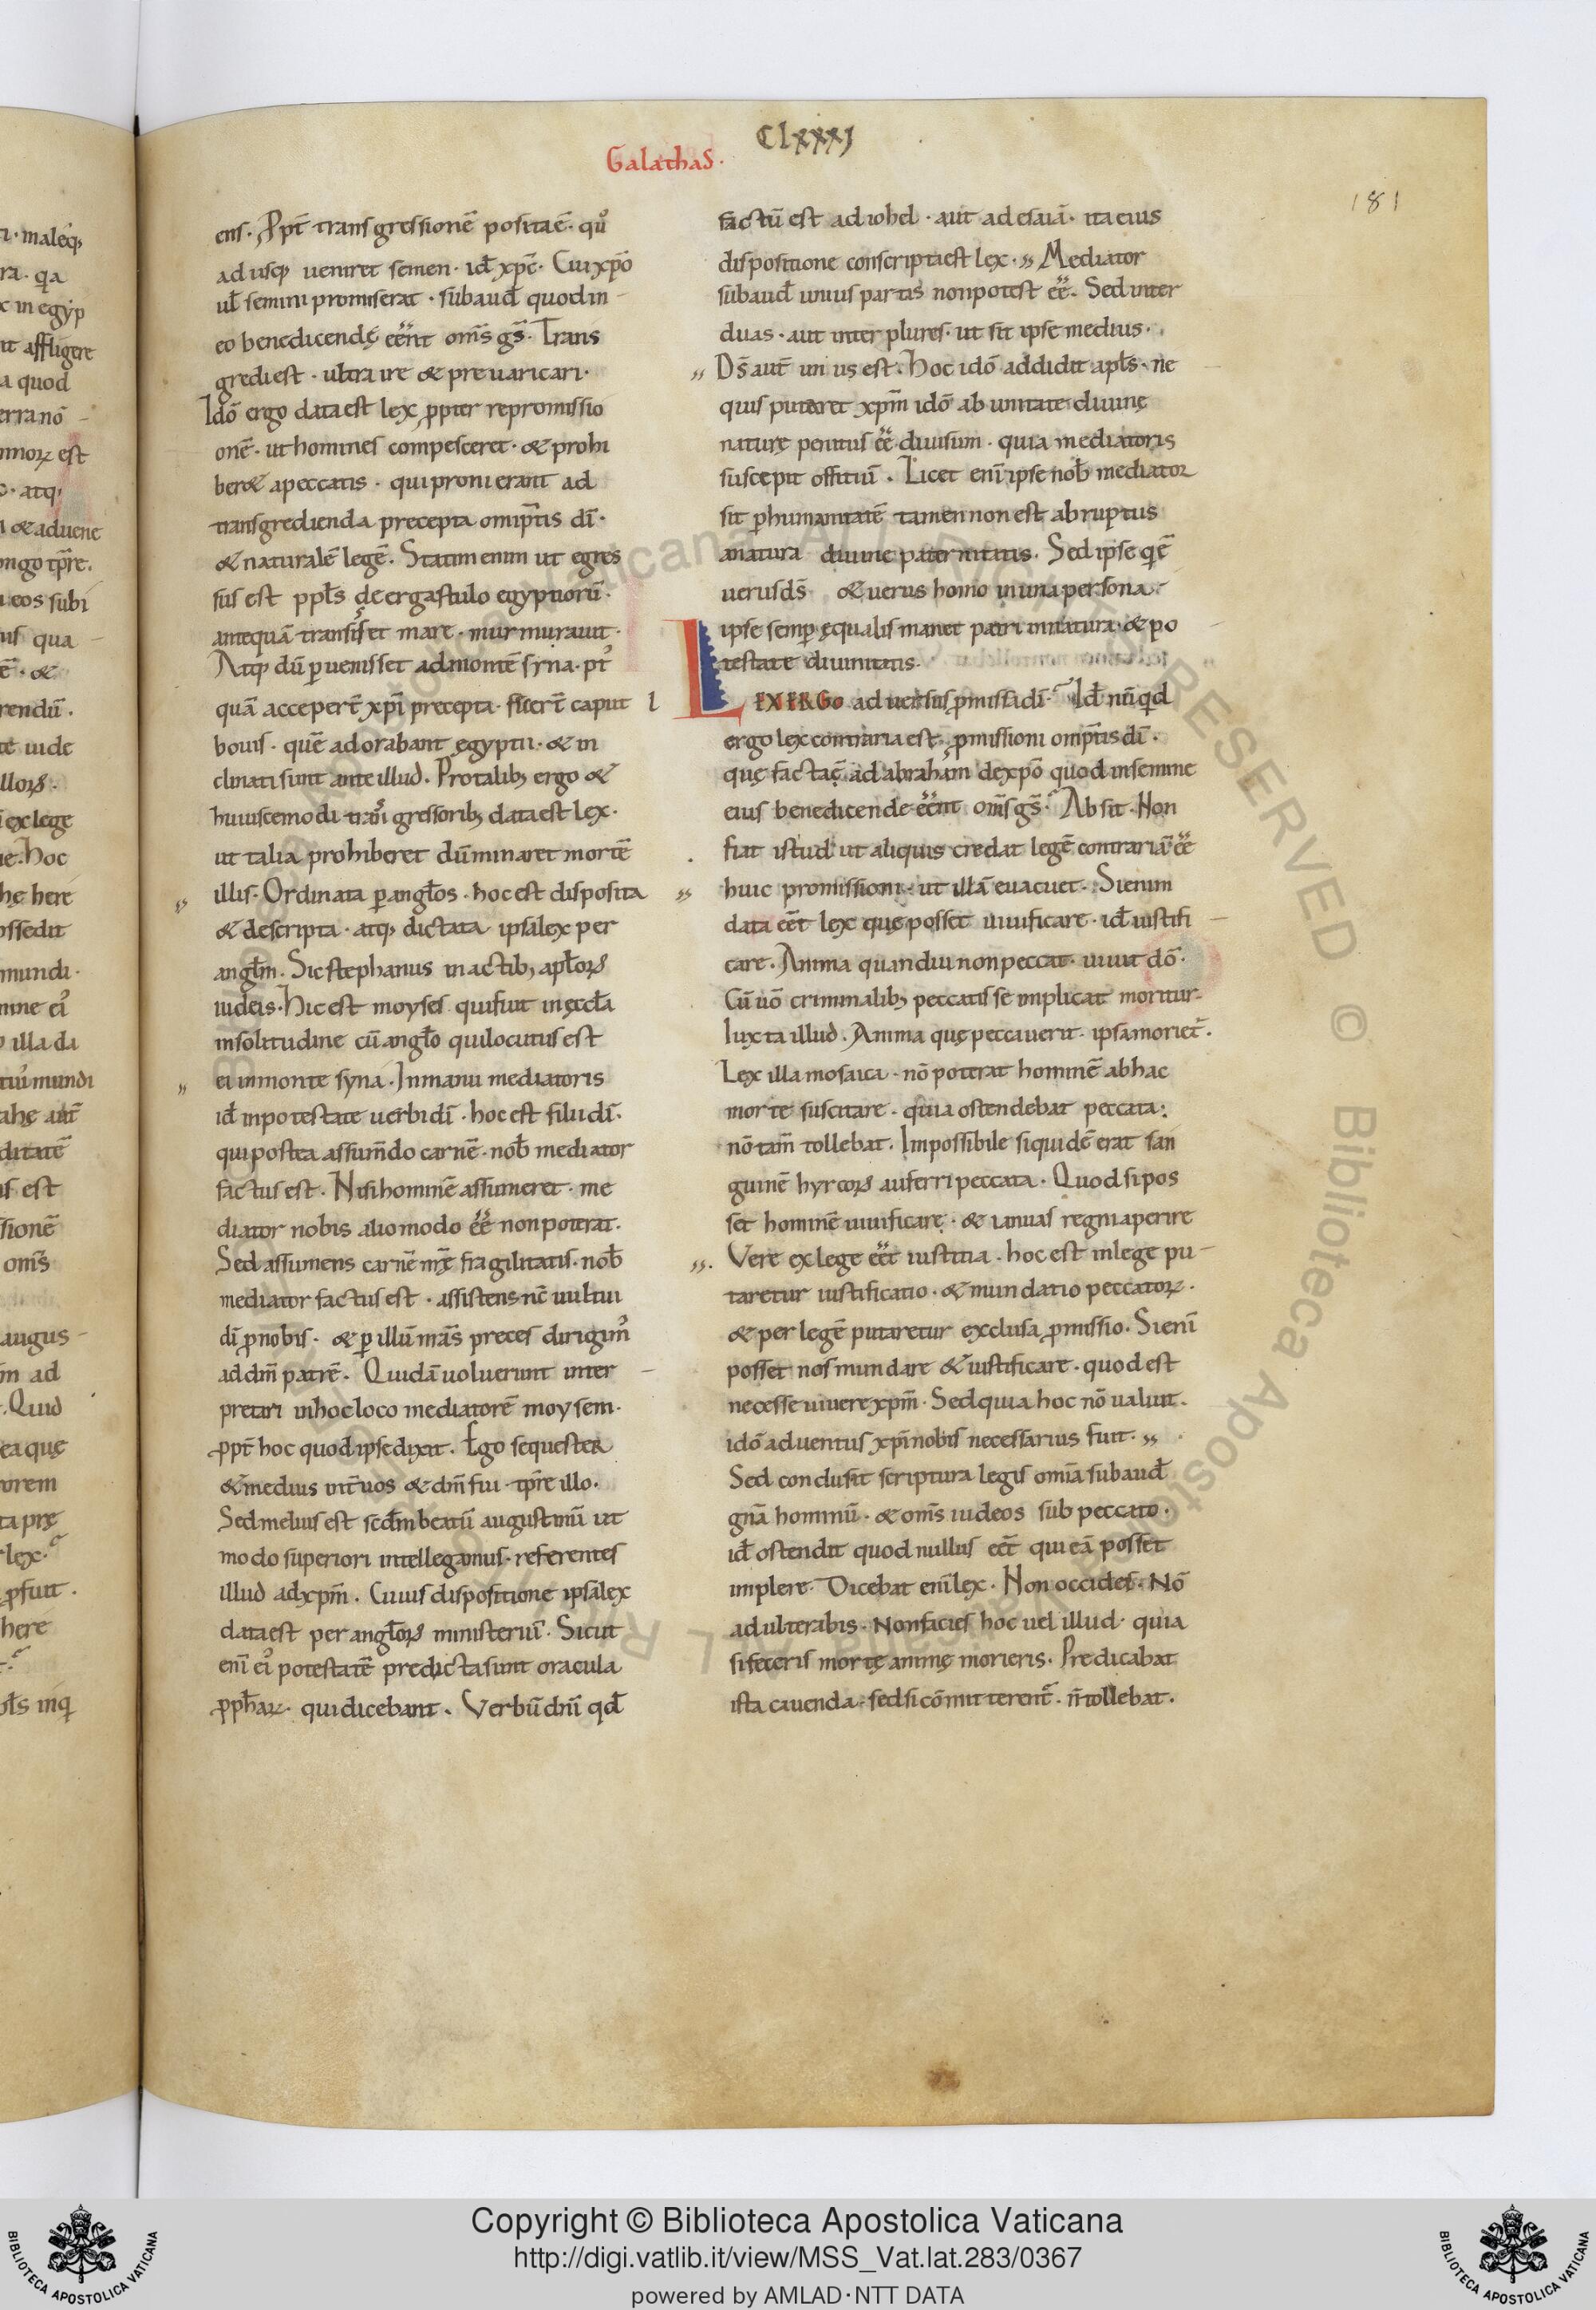 Clxxxj
Galathas.
181
ens. Ꝓpt̄ transgressionē posita ē. quͦ
ad usq; ueniret semen. id̄ xp̄c. Cui xp̄o
ul̄ semini promiserat. subaud̄ quod in
eo benedicendę eēnt om̄s gs̄. Trans
gredi est. ultra ire & preuaricari.
Idō ergo data est lex ꝓpter repromissio
onē. ut homines compesceret. & prohi
ber& a peccatis. qui proni erant ad
transgredienda precepta omip̄tis dī.
& naturalē legē. Statim enim ut egres
sus est ppl̄s de ergastulo egyptiorū.
antequā transisset mare. murmurauit.
Atq; dū ꝑuenisset ad montē syna. pꝰt
quā accepert̄ xp̄i precepta. fecert̄ caput
bouis. quē adorabant egyptii. & in
clinati sunt ante illud. Pro talib; ergo &
huiuscemodi transgressorib; data est lex.
ut talia prohiberet dū minaret mortē
illis. Ordinata ꝑ angl̄os. hoc est disposita
& descripta. atq; dictata ipsa lex per
angl̄m. Sic stephanus in actib; apl̄oꝝ
iudeis. Hic est moyses qui fuit in ęccl̄a
in solitudine cū angl̄o qui locutus est
ei in monte syna. In manu mediatoris
id̄ in potestate uerbi dī. hoc est filii dī.
qui postea assum̄do carnē. nob̄ mediator
factus est. Nisi hominē assumeret. me
diator nobis alio modo eē non poterat.
Sed assumens carnē nr̄ę fragilitatis. nob̄
mediator factus est. assistens nc̄ uultui
dī ꝓ nobis. & ꝑ illū nr̄as preces dirigimꝰ
ad dm̄ patrē. Quidā uoluerunt inter
pretari in hoc loco mediatorē moysem.
ꝓpt̄ hoc quod ipse dixit. Ego sequester
& medius int̄ uos & dm̄ fui tp̄re illo.
Sed melius est scd̄m beatū augustinū ut
modo superiori intellegamus. referentes
illud ad xp̄m. Cuius dispositione ipsa lex
data est per angl̄oꝝ ministeriū. Sicut
enī eiꝰ potestatē predicta sunt oracula
ꝓph̄aꝝ. qui dicebant. Verbū dnī qd̄
factū est ad iohel. aut ad esaiā. ita eius
dispositione conscripta est lex. Mediator
subaud̄ unius partis non potest eē. Sed inter
duas. aut inter plures. ut sit ipse medius.
Ds̄ aut̄ unus est. Hoc idō addidit apl̄s. ne
quis putaret xp̄m idō ab unitate diuinę
naturę penitus eē diuisum. quia mediatoris
suscepit offitiū. Licet enī ipse nob̄ mediator
sit ꝑ humanitatē tamen non est abruptus
a natura diuine paternitatis. Sed ipse qͥ ē
uerus ds̄ & uerus homo in una persona.
ipse semꝑ ęqualis manet patri in natura. & po
testate diuinitatis.
LEX ERGO aduersus ꝓmissa dī. Id̄ nū qd
ergo lex contraria est ꝓmissioni omip̄tis dī.
quę facta ē ad abraham de xp̄o quod in semine
eius benedicende eēnt om̄s gs̄. Absit. Non
fiat istud ut aliquis credat legē contrariā eē
huic promissioni. ut illā euacuet. Si enim
data eēt lex quę posset uiuificare. id̄ iustifi
care. Anima quandiu non peccat. uiuit dō.
Cū uō criminalib; peccatis se implicat moritur.
Iuxta illud. Anima quę peccauerit. ipsa moriet̄.
Lex illa mosaica. nō poterat hominē ab hac
morte suscitare. quia ostendebat peccata.
nō tam̄ tollebat. Impossibile siquidē erat san
guinē hyrcoꝝ auferri peccata. Quod si pos
set hominē uiuificare. & ianuas regni aperire
Vere ex lege eēt iustitia. hoc est in lege pu
taretur iustificatio. & mundatio peccatoꝝ.
& per legē putaretur exclusa ꝓmissio. Si enī
posset nos mundare & iustificare. quod est
necesse uiuere xp̄m. Sed quia hoc nō ualuit.
idō aduentus xp̄i nobis necessarius fuit.
Sed conclusit scriptura legis omīa subaud̄
gn̄a hominū. & om̄s iudeos sub peccato.
id̄ ostendit quod nullus eēt qui eā posset
implere. Dicebat enī lex. Non occides. Nō
adulterabis. Non facies hoc uel illud. quia
si feceris morte animę morieris. Predicabat
ista cauenda. sed si cōmitterent̄. n̄ tollebat.
Copyright © Biblioteca Apostolica Vaticana
http://digi.vatlib.it/view/MSS_Vat.lat.283/0367
powered by AMLAD·NTT DATA